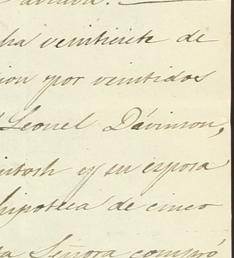 ha veintisiete de
cion por veintidos
Leonel Davinson,
intosh y su esposa
hipoteca de cinco
Señora compró